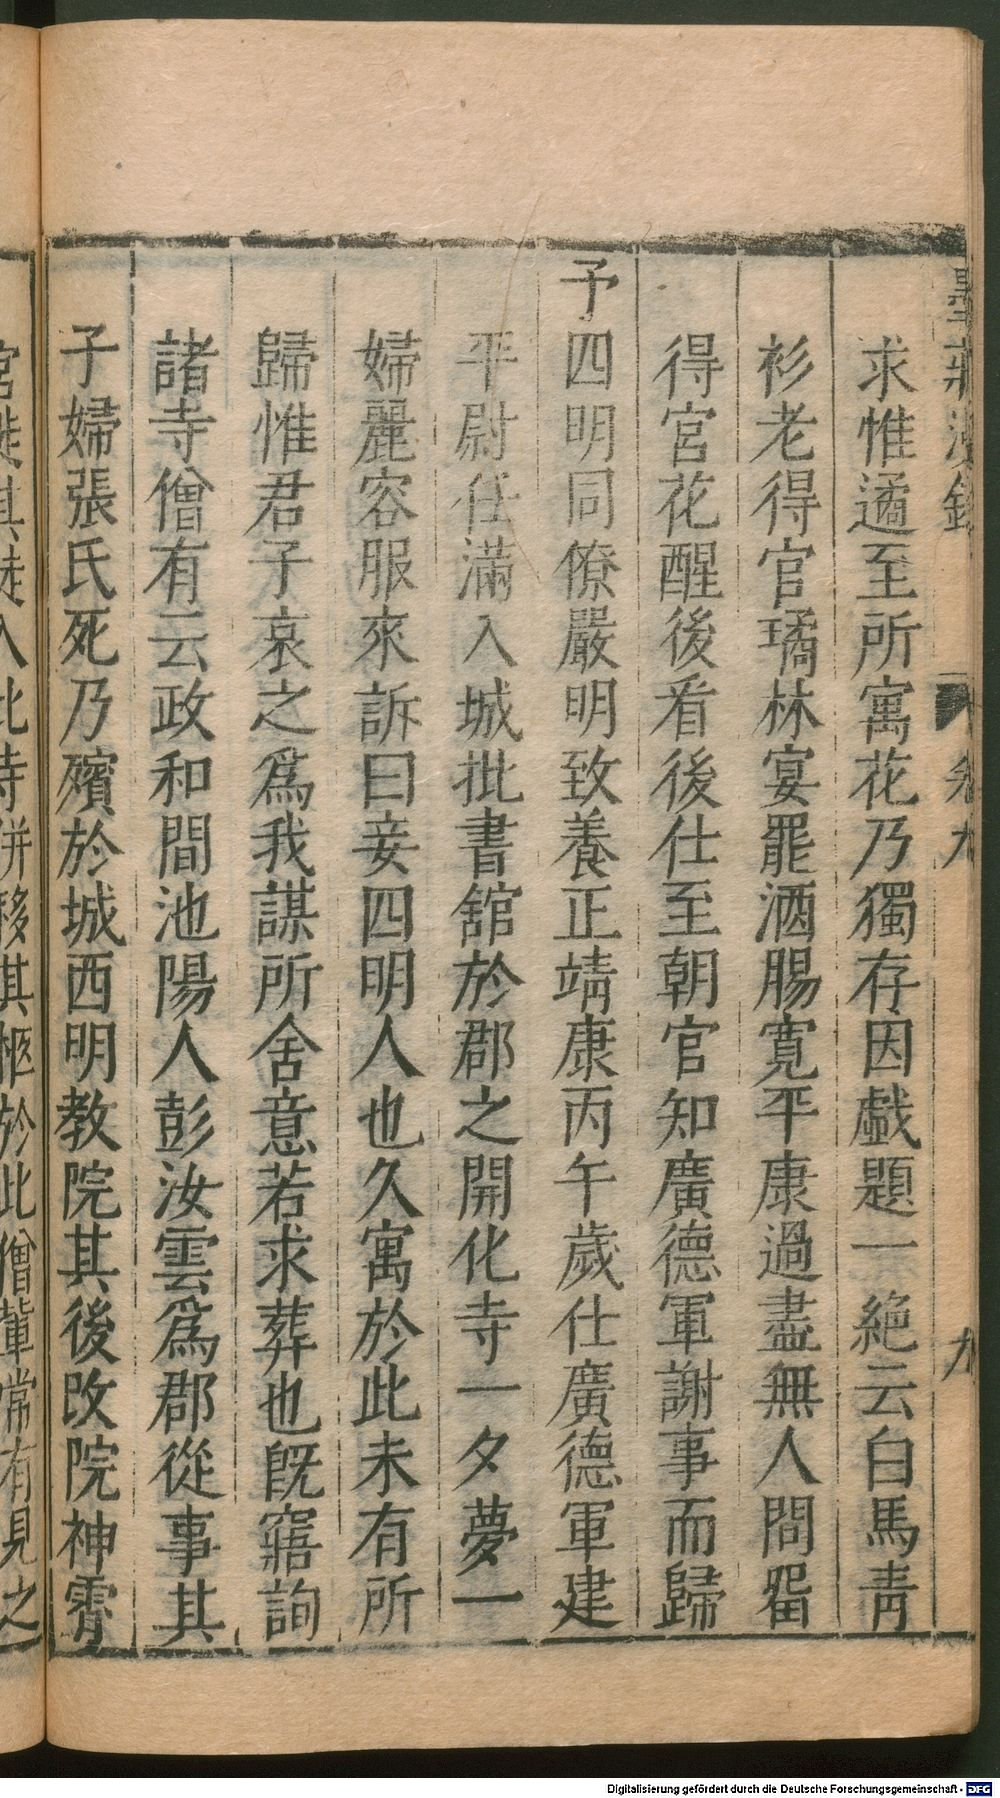 墨莊漫錄 卷九 九
求惟遹至所寓花乃獨存因戲題一絶云白馬青
衫老得官璚林宴罷酒腸寛平康過盡無人問留
得宮花醒後看後仕至朝官知廣德軍謝事而歸
予四明同僚嚴明致養正靖康丙午歲仕廣德軍建
平尉任滿入城批書舘於郡之開化寺一夕夢一
婦麗容服來訴曰妾四明人也久寓於此未有所
歸惟君子哀之爲我謀所舍意若求葬也旣寤詢
諸寺僧有云政和間池陽人彭汝雲爲郡從事其
子婦張氏死乃殯於城西明教院其後改院神霄
宮徙其徒入此寺併移其柩於此僧軰常有見之
Digitalisierung gefördert durch die Deutsche Forschungsgemeinschaft - DFG